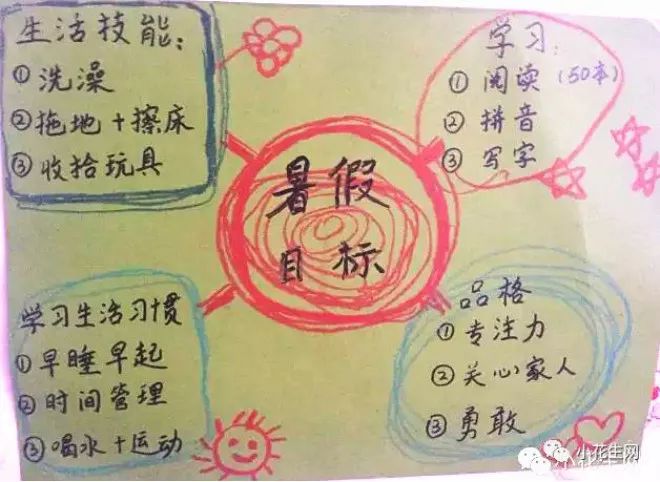 生活技能:
①洗澡
②拖地+擦床
③收拾玩具
学习:
①阅读(50本)
②拼音
③写字
暑假
目标
学习生活习惯
①早睡早起
②时间管理
③喝水+运动
品格
①专注力
②关心家人
③勇敢
小花生网